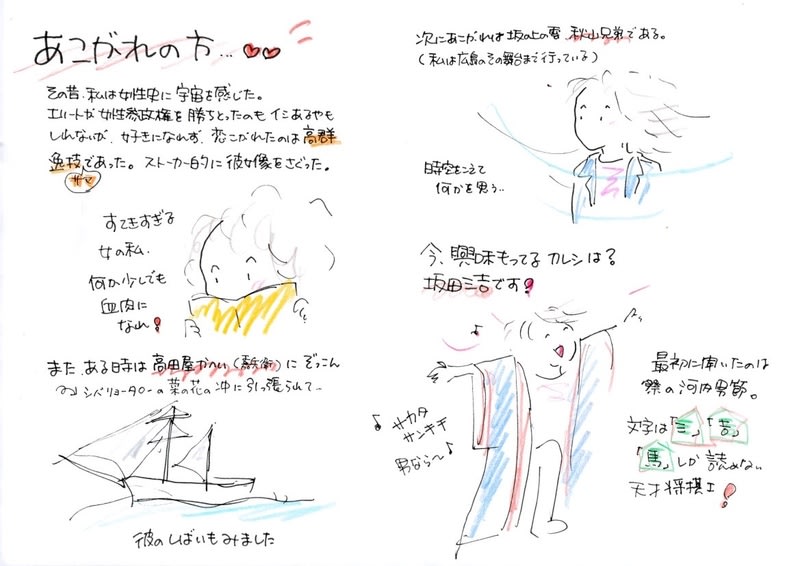 あこがれの方…
その昔、私は女性史に宇宙を感じた。
エリートが女性参政権を勝ちとったのもイミあるやも
しれないが、好きになれず、恋こがれたのは高群
逸枝であった。ストーカー的に彼女像をさぐった。
すてきすぎる
女の私、
何か少しでも
血肉に
なれ!
また、ある日寺は高田屋かへい(嘉兵衛)にぞっこん
シバリョータローの菜の花の沖に引っ張られて〜
彼のしばいもみました
次にあこがれは坂の上の雲 秋山兄弟である。
(私は広島のその舞台まで行っている)
時空をこえて
何かを思う…
今、興味もってるカレシは?
坂田三吉です!
♪
♪ サカタ
サンキチ
男なら〜♪
最初に聞いたのは
祭の河内男節。
文字は「三」「吉」
「馬」しか読めない
天才将棋士!